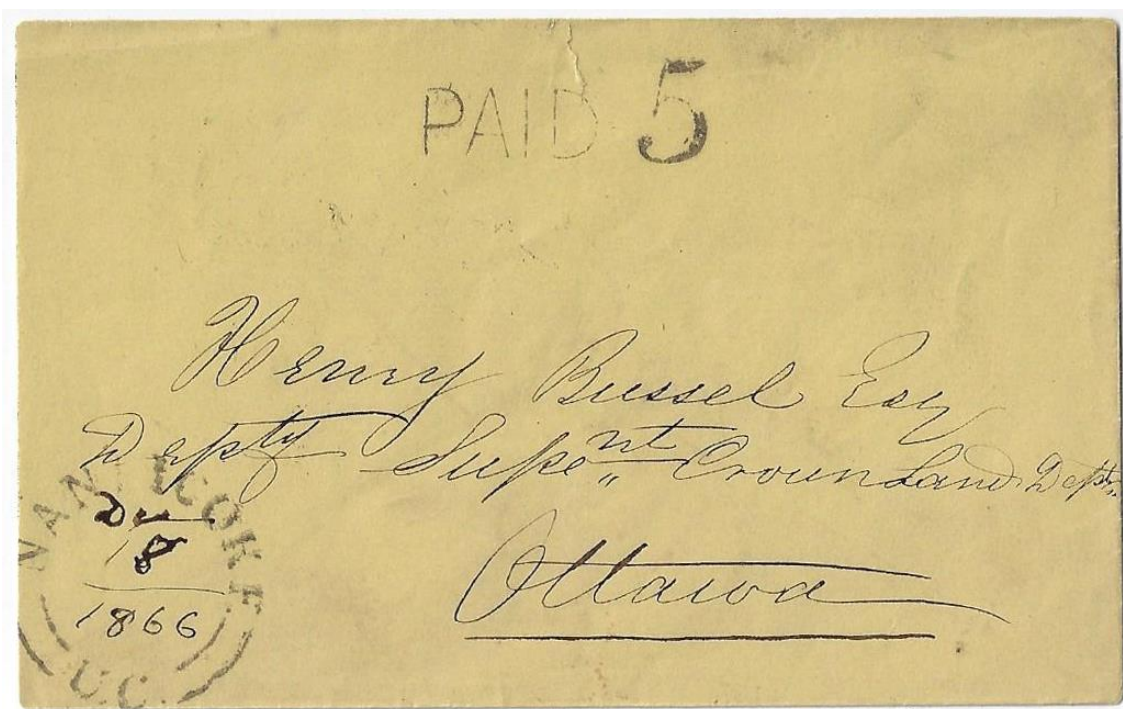 PAID 5
Henry Bussel Esq
Depty Supent Crown Land Dept
Ottawa
NANTICOKE
Dec
18
1866
U.C.